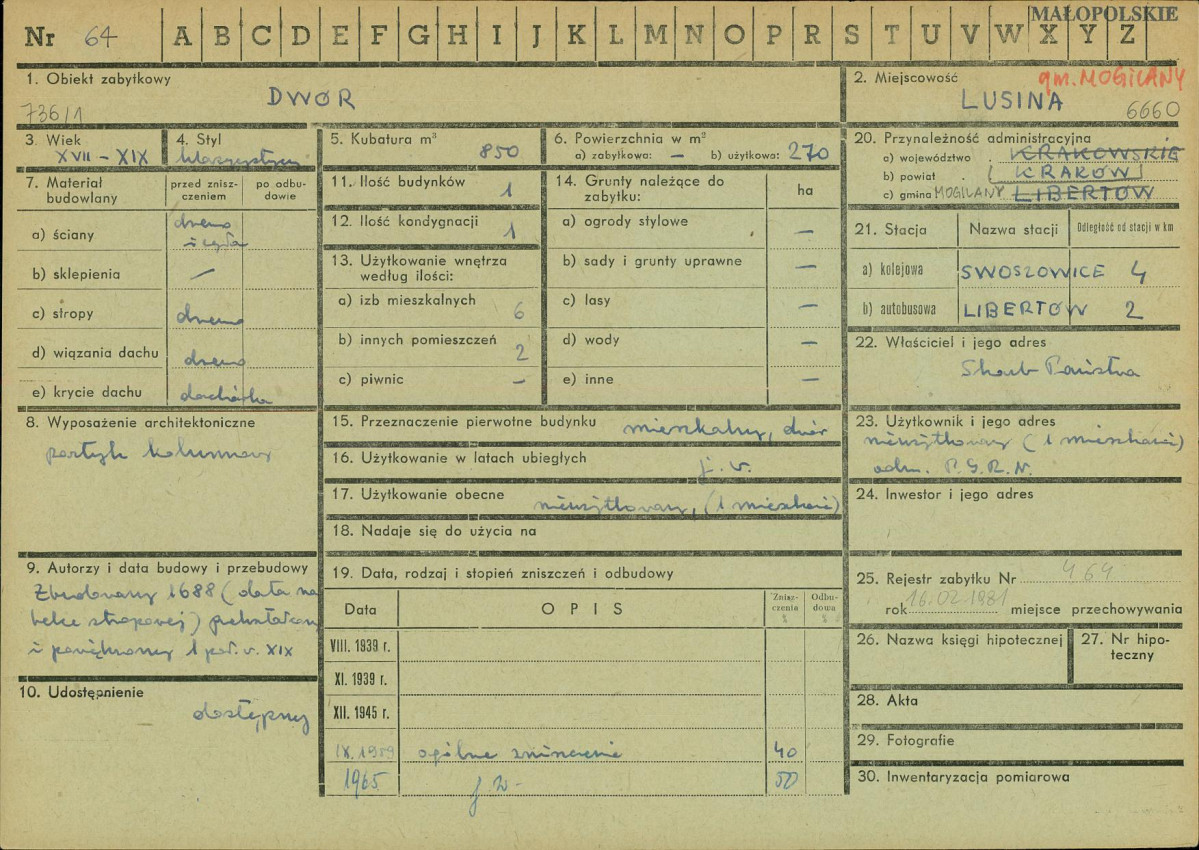 MAŁOPOLSKIE
Nr 64 A B C D E F G H I J K L M N O P R S T U V W X Y Z
1. Obiekt zabytkowy
DWÓR
736/1
2. Miejscowość
gm. MOGILANY
LUSINA
6660
3. Wiek
XVII – XIX
4. Styl
klasycystyczny
5. Kubatura m³
850
6. Powierzchnia w m²
a) zabytkowa: — b) użytkowa: 270
20. Przynależność administracyjna
a) województwo . KRAKOWSKIE
b) powiat . KRAKÓW
c) gmina MOGILANY LIBERTÓW
7. Materiał budowlany
przed znisz-
czeniem
po odbu-
dowie
a) ściany
drewno
i cegła
b) sklepienia —
c) stropy drewno
d) wiązania dachu drewno
e) krycie dachu dachówka
11. Ilość budynków 1
12. Ilość kondygnacji 1
13. Użytkowanie wnętrza
według ilości:
a) izb mieszkalnych 6
b) innych pomieszczeń 2
c) piwnic —
14. Grunty należące do
zabytku:
ha
a) ogrody stylowe —
b) sady i grunty uprawne —
c) lasy —
d) wody —
e) inne —
21. Stacja Nazwa stacji Odległość od stacji w km
a) kolejowa SWOSZOWICE 4
b) autobusowa LIBERTÓW 2
22. Właściciel i jego adres
Skarb Państwa
8. Wyposażenie architektoniczne
portyk kolumnowy
15. Przeznaczenie pierwotne budynku mieszkalny, dwór
16. Użytkowanie w latach ubiegłych j. w.
17. Użytkowanie obecne nieużytkowany, (1 mieszkanie)
18. Nadaje się do użycia na
23. Użytkownik i jego adres
nieużytkowany (1 mieszkanie)
adm. P.G.R.N.
24. Inwestor i jego adres
9. Autorzy i data budowy i przebudowy
Zbudowany 1688 (data na
belce stropowej) przekształcony
i powiększony 1 poł. w. XIX
10. Udostępnienie
dostępny
19. Data, rodzaj i stopień zniszczeń i odbudowy
Data OPIS
Znisz-
czenia
%
Odbu-
dowa
%
VIII. 1939 r.
XI. 1939 r.
XII. 1945 r.
IX. 1959 ogólne zniszczenie 40
1965 j. w. 50
25. Rejestr zabytku Nr 464
rok 16.02.1981 miejsce przechowywania
26. Nazwa księgi hipotecznej
27. Nr hipo-
teczny
28. Akta
29. Fotografie
30. Inwentaryzacja pomiarowa